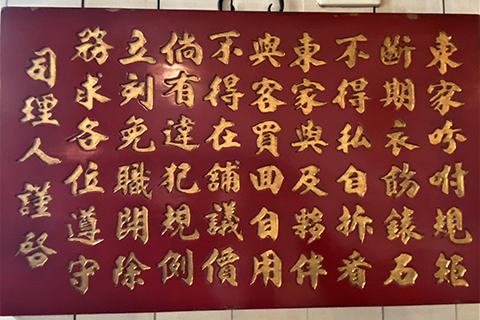 東家吩咐規矩
断期衣飭錶石
不得私自拆看
東家與及夥伴
與客買回自用
不得在舖議價
倘有違犯規例
立刻免職開除
務求各位遵守
司理人謹啓